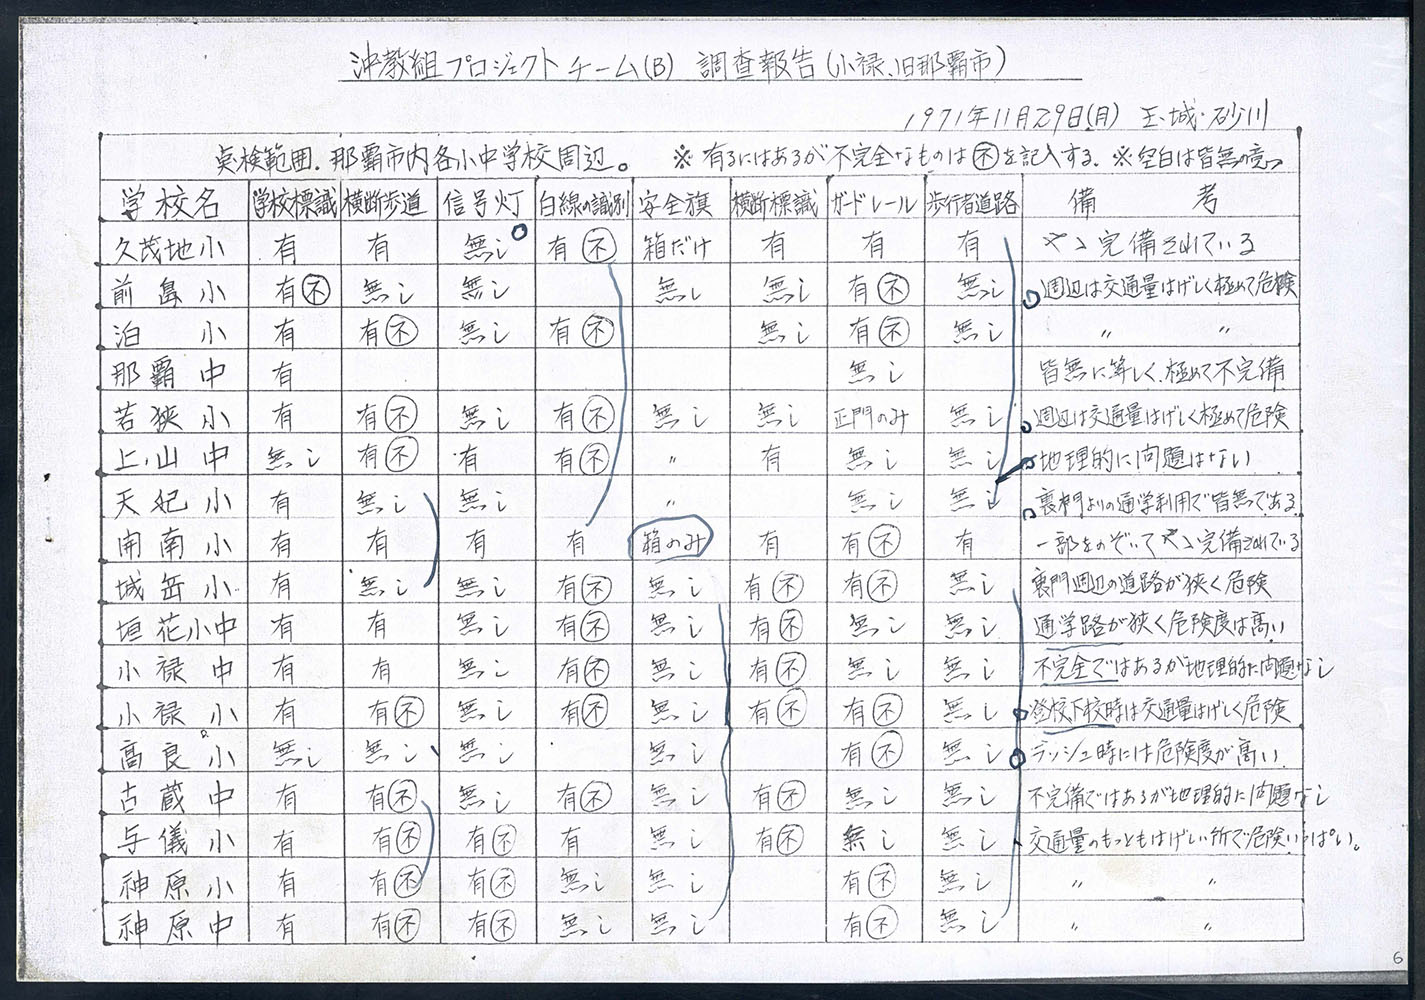 沖教組プロジェクトチーム(B) 調査報告(小禄、旧那覇市)
1971年11月29日(月) 玉城・砂川
点検範囲.那覇市内各小中学校周辺。 ※有るにはあるが不完全なものは㊀不を記入する.※空白は皆無の意
学校名 学校標識 横断歩道 信号灯 白線の識別 安全旗 横断標識 ガードレール 歩行者道路 備考
久茂地小 有 有 無し 有不 箱だけ 有 有 有 やゝ完備されている
前島小 有不 無し 無し 無し 無し 有不 無し 周辺は交通量はげしく極めて危険
泊小 有 有不 無し 有不 無し 有不 無し 〃 〃
那覇中 有 無し 皆無に等しく、極めて不完備
若狭小 有 有不 無し 有不 無し 無し 正門のみ 無し 周辺は交通量はげしく極めて危険
上山中 無し 有不 有 有不 〃 有 無し 無し 地理的に問題はない
天妃小 有 無し 無し 〃 無し 無し 裏門よりの通学利用で皆無である
開南小 有 有 有 有 箱のみ 有 有不 有 一部をのぞいてやゝ完備されている
城岳小 有 無し 無し 有不 無し 有不 有不 無し 裏門周辺の道路が狭く危険
垣花小中 有 有 無し 有不 無し 有不 無し 無し 通学路が狭く危険度は高い
小禄中 有 有 無し 有不 無し 有不 無し 無し 不完全ではあるが地理的に問題なし
小禄小 有 有不 無し 有不 無し 有不 有不 無し 登校下校時は交通量はげしく危険
高良小 無し 無し 無し 無し 有不 無し ラッシュ時には危険度が高い.
古蔵中 有 有不 無し 有不 無し 有不 無し 無し 不完備ではあるが地理的に問題なし
与儀小 有 有不 有不 有 無し 有不 無し 無し 交通量のもっともはげしい所で危険いっぱい。
神原小 有 有不 有不 無し 無し 有不 無し 〃 〃
神原中 有 有不 有不 無し 無し 有不 無し 〃 〃
6